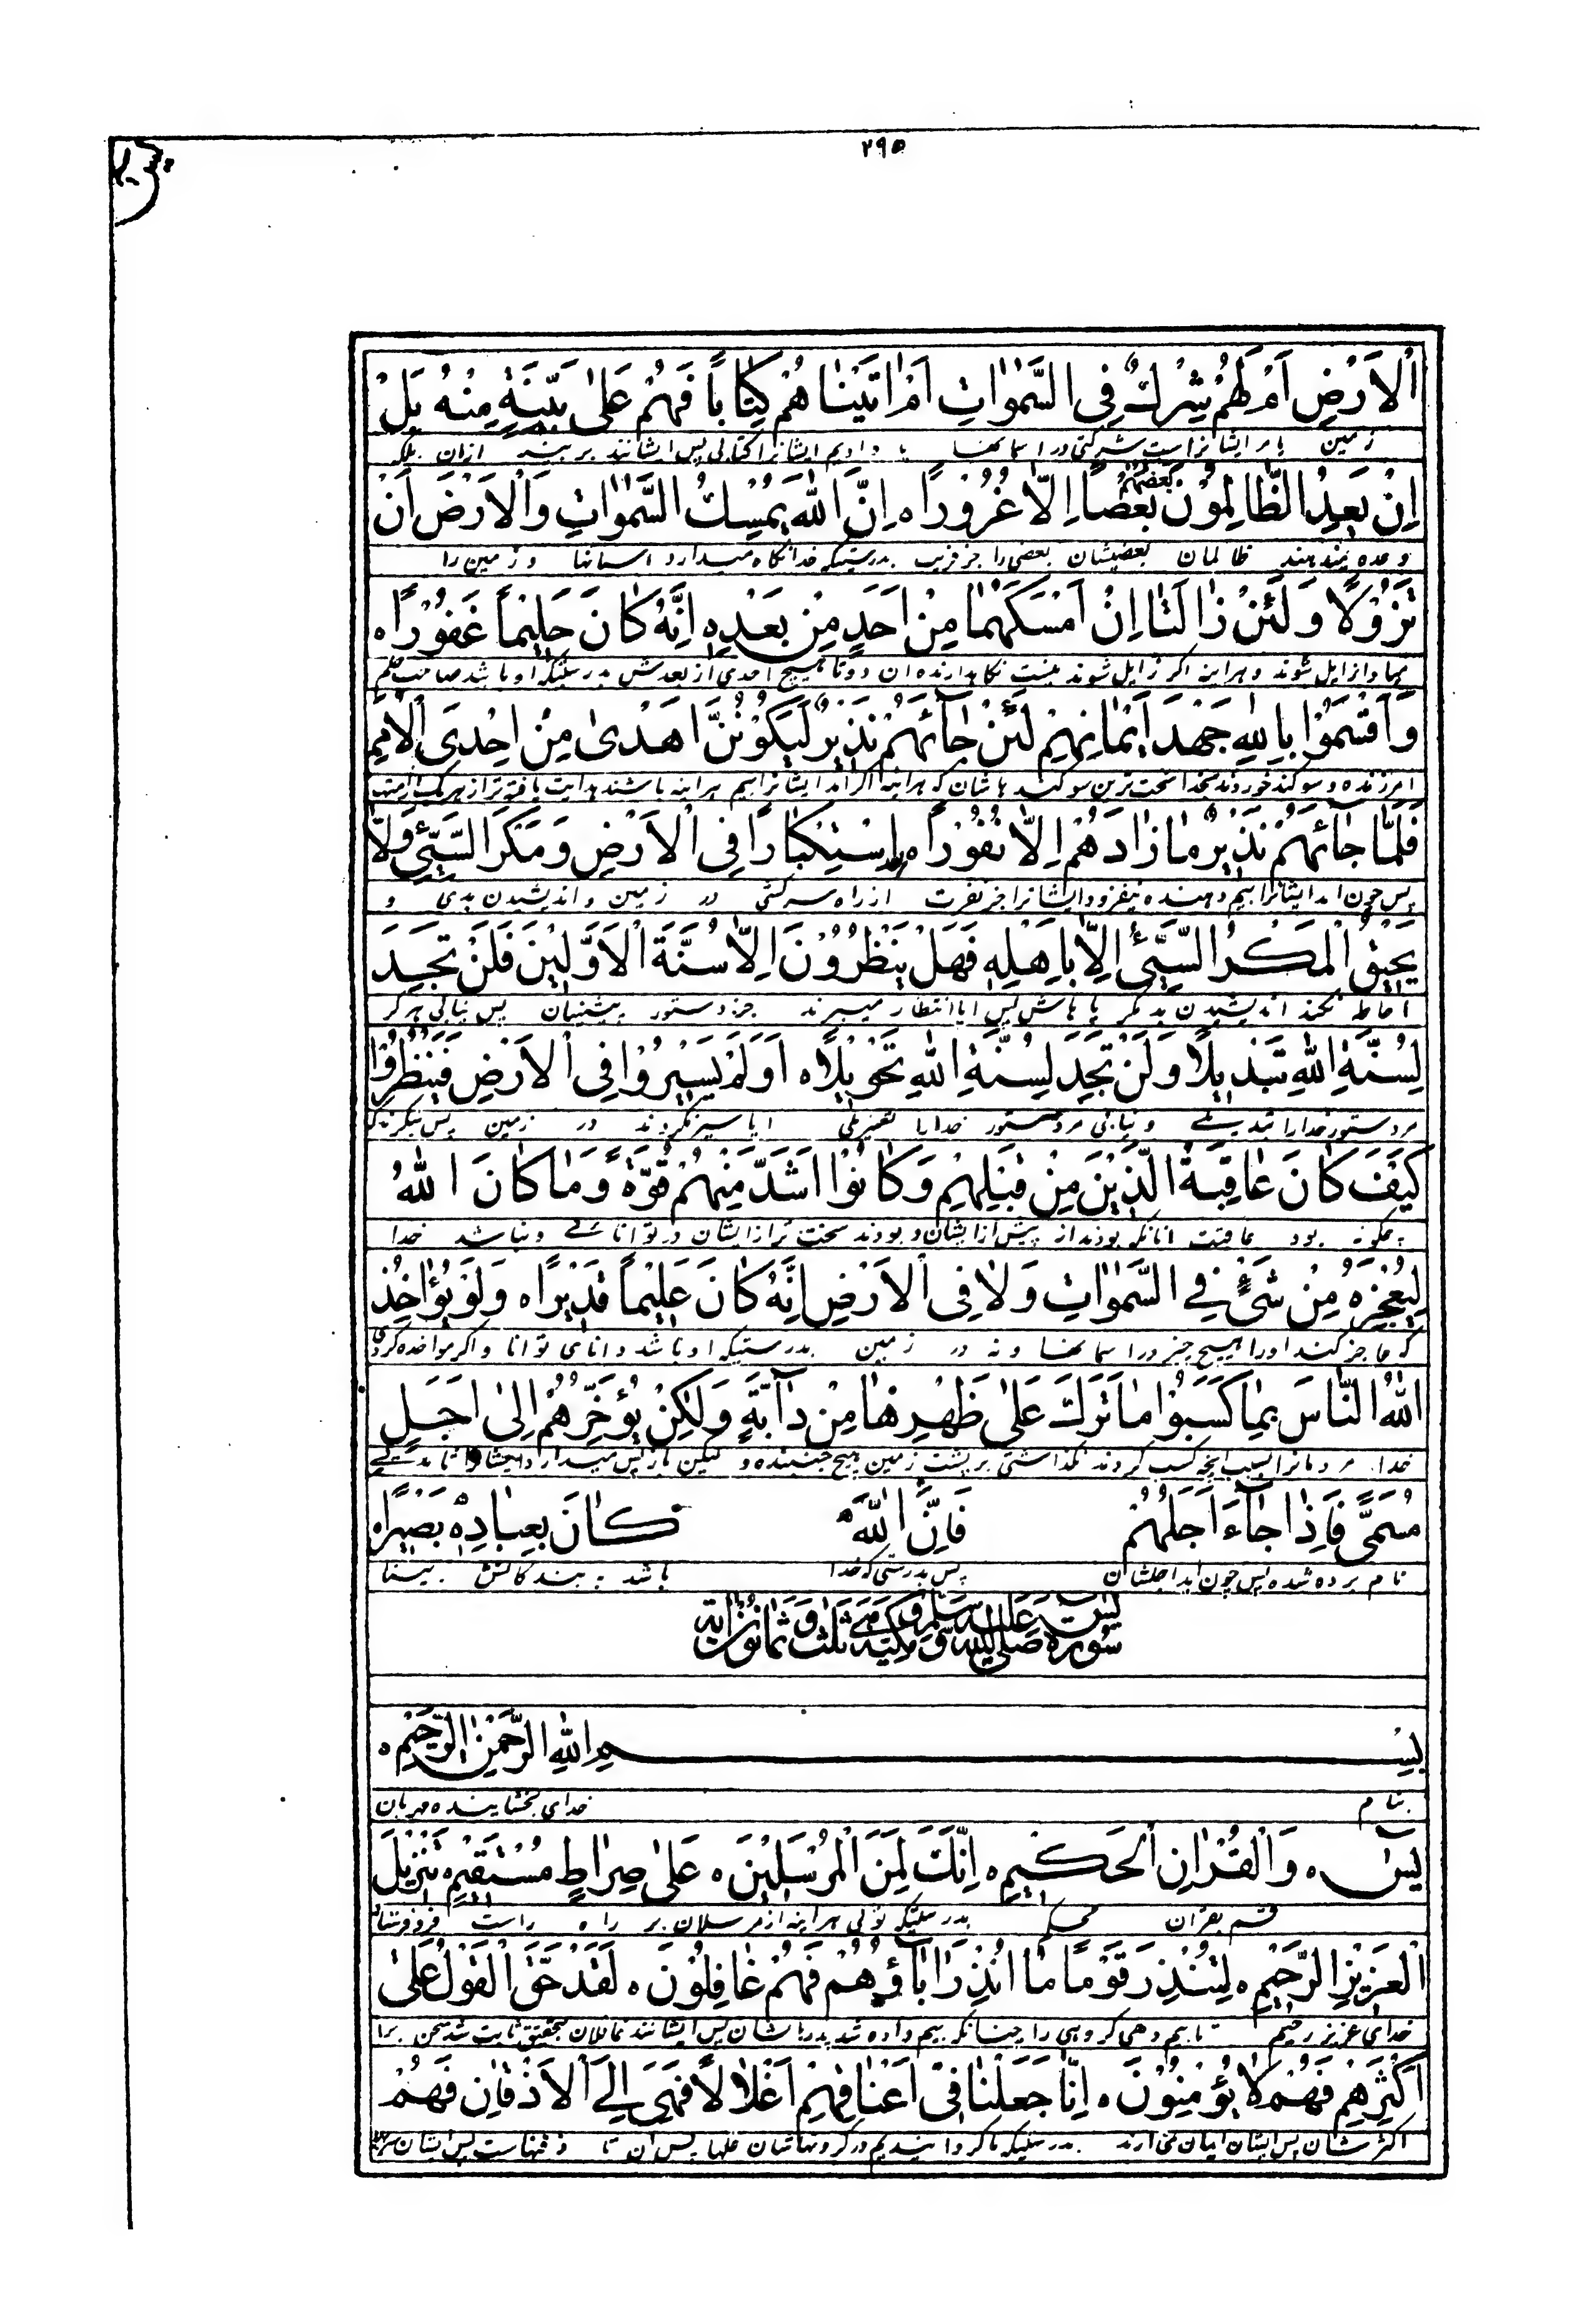 ۲۹۵
اْلاَرْضِ اَمْ لَهُمْ شِرْكٌ فِی السَّمٰوٰاتِ اَمْ اٰتَیْنٰاهُمْ كِتٰاباً فَهُمْ عَلیٰ بَیِّنَةٍ مِنْهُ بَلْ
زمین یا مر ایشانراست شرکتی در اسمانها یا دادیم ایشانرا کتابی پس ایشانند بر بینه ازان بلکه
اِنْ یَعِدُ الظّٰالِمُوْنَ بَعْضُهُمْ بَعْضاً اِلاّٰ غُرُوْراًه اِنَّ اللّٰهَ یُمْسِكُ السَّمٰوٰاتِ وَاْلاَرْضَ اَنْ
وعده نمیدهند ظالمان بعضیشان بعضی را جز فریب بدرستیکه خدا نگاه میدارد اسمانها و زمین را
تَزُوْلاٰ وَلَئِنْ زٰالَتٰا اِنْ اَمْسَكَهُمٰا مِنْ اَحَدٍ مِنْ بَعْدِهِ اِنَّهُ كٰانَ حَلِیْماً غَفُوْراًه
زایل شوند و هراینه اگر زایل شوند نیست نگاهدارنده ان دو تا هیچ احدی از بعدش بدرستیکه او باشد صاحب حلم
وَاَقْسَمُوْا بِاللّٰهِ جَهْدَ اَیْمٰانِهِمْ لَئِنْ جٰائَهُمْ نَذِیْرٌ لَیَكُوْنُنَّ اَهْدیٰ مِنْ اِحْدَی اْلاُمَمِ
امرزنده و سوگند خوردند بخدا سخت ترین سوگندهاشان که هراینه اگر امد ایشانرا بیم هراینه باشند هدایت یافته تر از هریک
فَلَمّٰا جٰائَهُمْ نَذِیْرٌ مٰا زٰادَهُمْ اِلاّٰ نُفُوْراًه اِسْتِكْبٰاراً فِی اْلاَرْضِ وَمَكْرَ السَّیِّئِ وَلاٰ
پس چون امد ایشانرا بیم دهنده نیفزود ایشانرا جز نفرت از راه سرکشی در زمین و اندیشیدن بدی و
یَحِیْقُ الْمَكْرُ السَّیِّئُ اِلاّٰ بِاَهْلِهِ فَهَلْ یَنْظُرُوْنَ اِلاّٰ سُنَّةَ اْلاَوَّلِیْنَ فَلَنْ تَجِدَ
احاطه نکند اندیشیدن بد مگر با هلش پس ایا انتظار میبرند جز دستور پیشینیان پس نیابی هرگز
لِسُنَّةِ اللّٰهِ تَبْدِیْلاً وَلَنْ تَجِدَ لِسُنَّةِ اللّٰهِ تَحْوِیْلاًه اَوَلَمْ یَسِیْرُوْا فِی اْلاَرْضِ فَیَنْظُرُوْا
مر دستور خدا را تبدیلی و نیابی مر دستور خدا یا تغییری ایا سیر نکردند در زمین پس بنگرند
كَیْفَ كٰانَ عٰاقِبَةُ الَّذِیْنَ مِنْ قَبْلِهِمْ وَكٰانُوْا اَشَدَّ مِنْهُمْ قُوَّةً وَمٰا كٰانَ اللّٰهُ
چگونه بود عاقبت انانکه بودند از پیش از ایشان و بودند سخت تر از ایشان در توانائی و نباشد خدا
لِیُعْجِزَهُ مِنْ شَیْءٍ فِی السَّمٰوٰاتِ وَلاٰ فِی اْلاَرْضِ اِنَّهُ كٰانَ عَلِیْماً قَدِیْراًه وَلَوْ یُؤٰاخِذُ
که عاجز کند او را هیچ چیز در اسمانها و نه در زمین بدرستیکه او باشد دانای توانا و اگر مواخذه کردی
اللّٰهُ النّٰاسَ بِمٰا كَسَبُوْا مٰا تَرَكَ عَلیٰ ظَهْرِهٰا مِنْ دٰآبَّةٍ وَلٰكِنْ یُؤَخِّرُهُمْ اِلیٰ اَجَلٍ
خدا مردمانرا بسبب انچه کسب کردند نگذاشتی بر پشت زمین هیچ جنبنده و لیکن بازپس میدارد ایشانرا تا مدتی
مُسَمًّی فَاِذٰا جٰآءَ اَجَلُهُمْ فَاِنَّ اللّٰهَ كٰانَ بِعِبٰادِهِ بَصِیْراًه
نام برده شده پس چون اید اجلشان پس بدرستی که خدا باشد به بندگانش بینا
سوره یٰس صلی الله علیه و سلم و هی مکیّة ثلث و ثمانون آیة
بِسْمِ اللّٰهِ الرَّحْمٰنِ الرَّحِیْمِه
بنام خدای بخشاینده مهربان
یٰسه وَالْقُرْاٰنِ الْحَكِیْمِه اِنَّكَ لَمِنَ الْمُرْسَلِیْنَه عَلیٰ صِرٰاطٍ مُسْتَقِیْمٍه تَنْزِیْلَ
قسم بقران محکم بدرستیکه توئی هراینه از مرسلان بر راه راست
الْعَزِیْزِ الرَّحِیْمِه لِتُنْذِرَ قَوْماً مٰا اُنْذِرَ اٰبٰآؤُهُمْ فَهُمْ غٰافِلُوْنَه لَقَدْ حَقَّ الْقَوْلُ عَلیٰ
خدای عزیز رحیم تا بیم دهی گروهی را چنانکه بیم داده شد پدرهاشان پس ایشانند غافلان بتحقیق ثابت شد سخن بر
اَكْثَرِهِمْ فَهُمْ لاٰ یُؤْمِنُوْنَه اِنّٰا جَعَلْنٰا فِیْ اَعْنٰاقِهِمْ اَغْلاٰلاً فَهِیَ اِلَی اْلاَذْقٰانِ فَهُمْ
اکثرشان پس ایشان ایمان نمی ارند بدرستیکه ما گردانیدیم در گردنهاشان غلها پس ان تا ذقنهاست پس ایشان